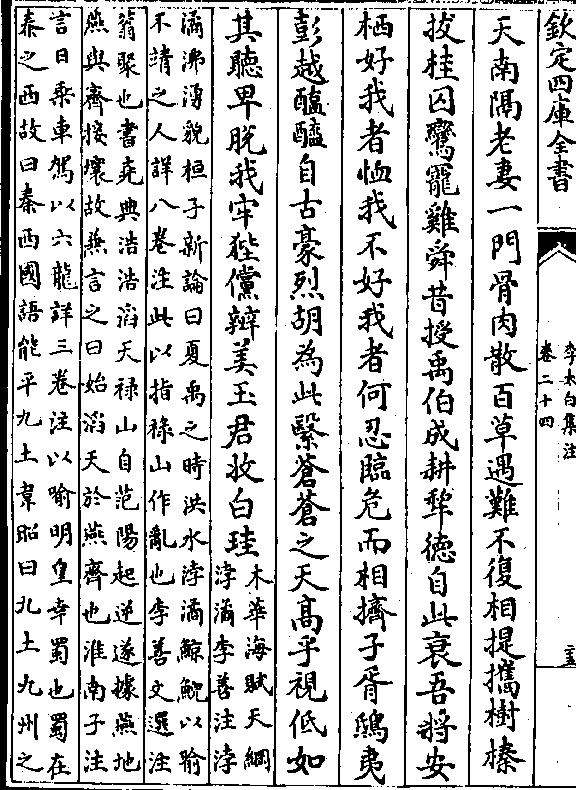 欽定四庫全書
李太白集注
卷二十四
天南隅老妻一門骨肉散百草遇難不復相提攜樹榛
拔桂囚鸞寵雞舜昔授禹伯成耕犂德自此衰吾將安
栖好我者恤我不好我者何忍臨危而相擠子胥鴟夷
彭越醢醯自古豪烈胡為此繄蒼蒼之天高乎視低如
其聽卑脫我牢狴儻辨美玉君收白珪
木華海賦天綱
浡潏李善注浡
潏沸湧貌桓子新論曰夏禹之時洪水浡潏鯨鯢以喻
不靖之人詳八卷注此以指祿山作亂也李善文選注
翕聚也書堯典浩浩滔天祿山自范陽起逆遂據燕地
燕與齊接壤故兼言之曰始滔天於燕齊也淮南子注
言日乘車駕以六龍詳三卷注以喻明皇幸蜀也蜀在
秦之西故曰秦西國語能平九土韋昭曰九土九州之